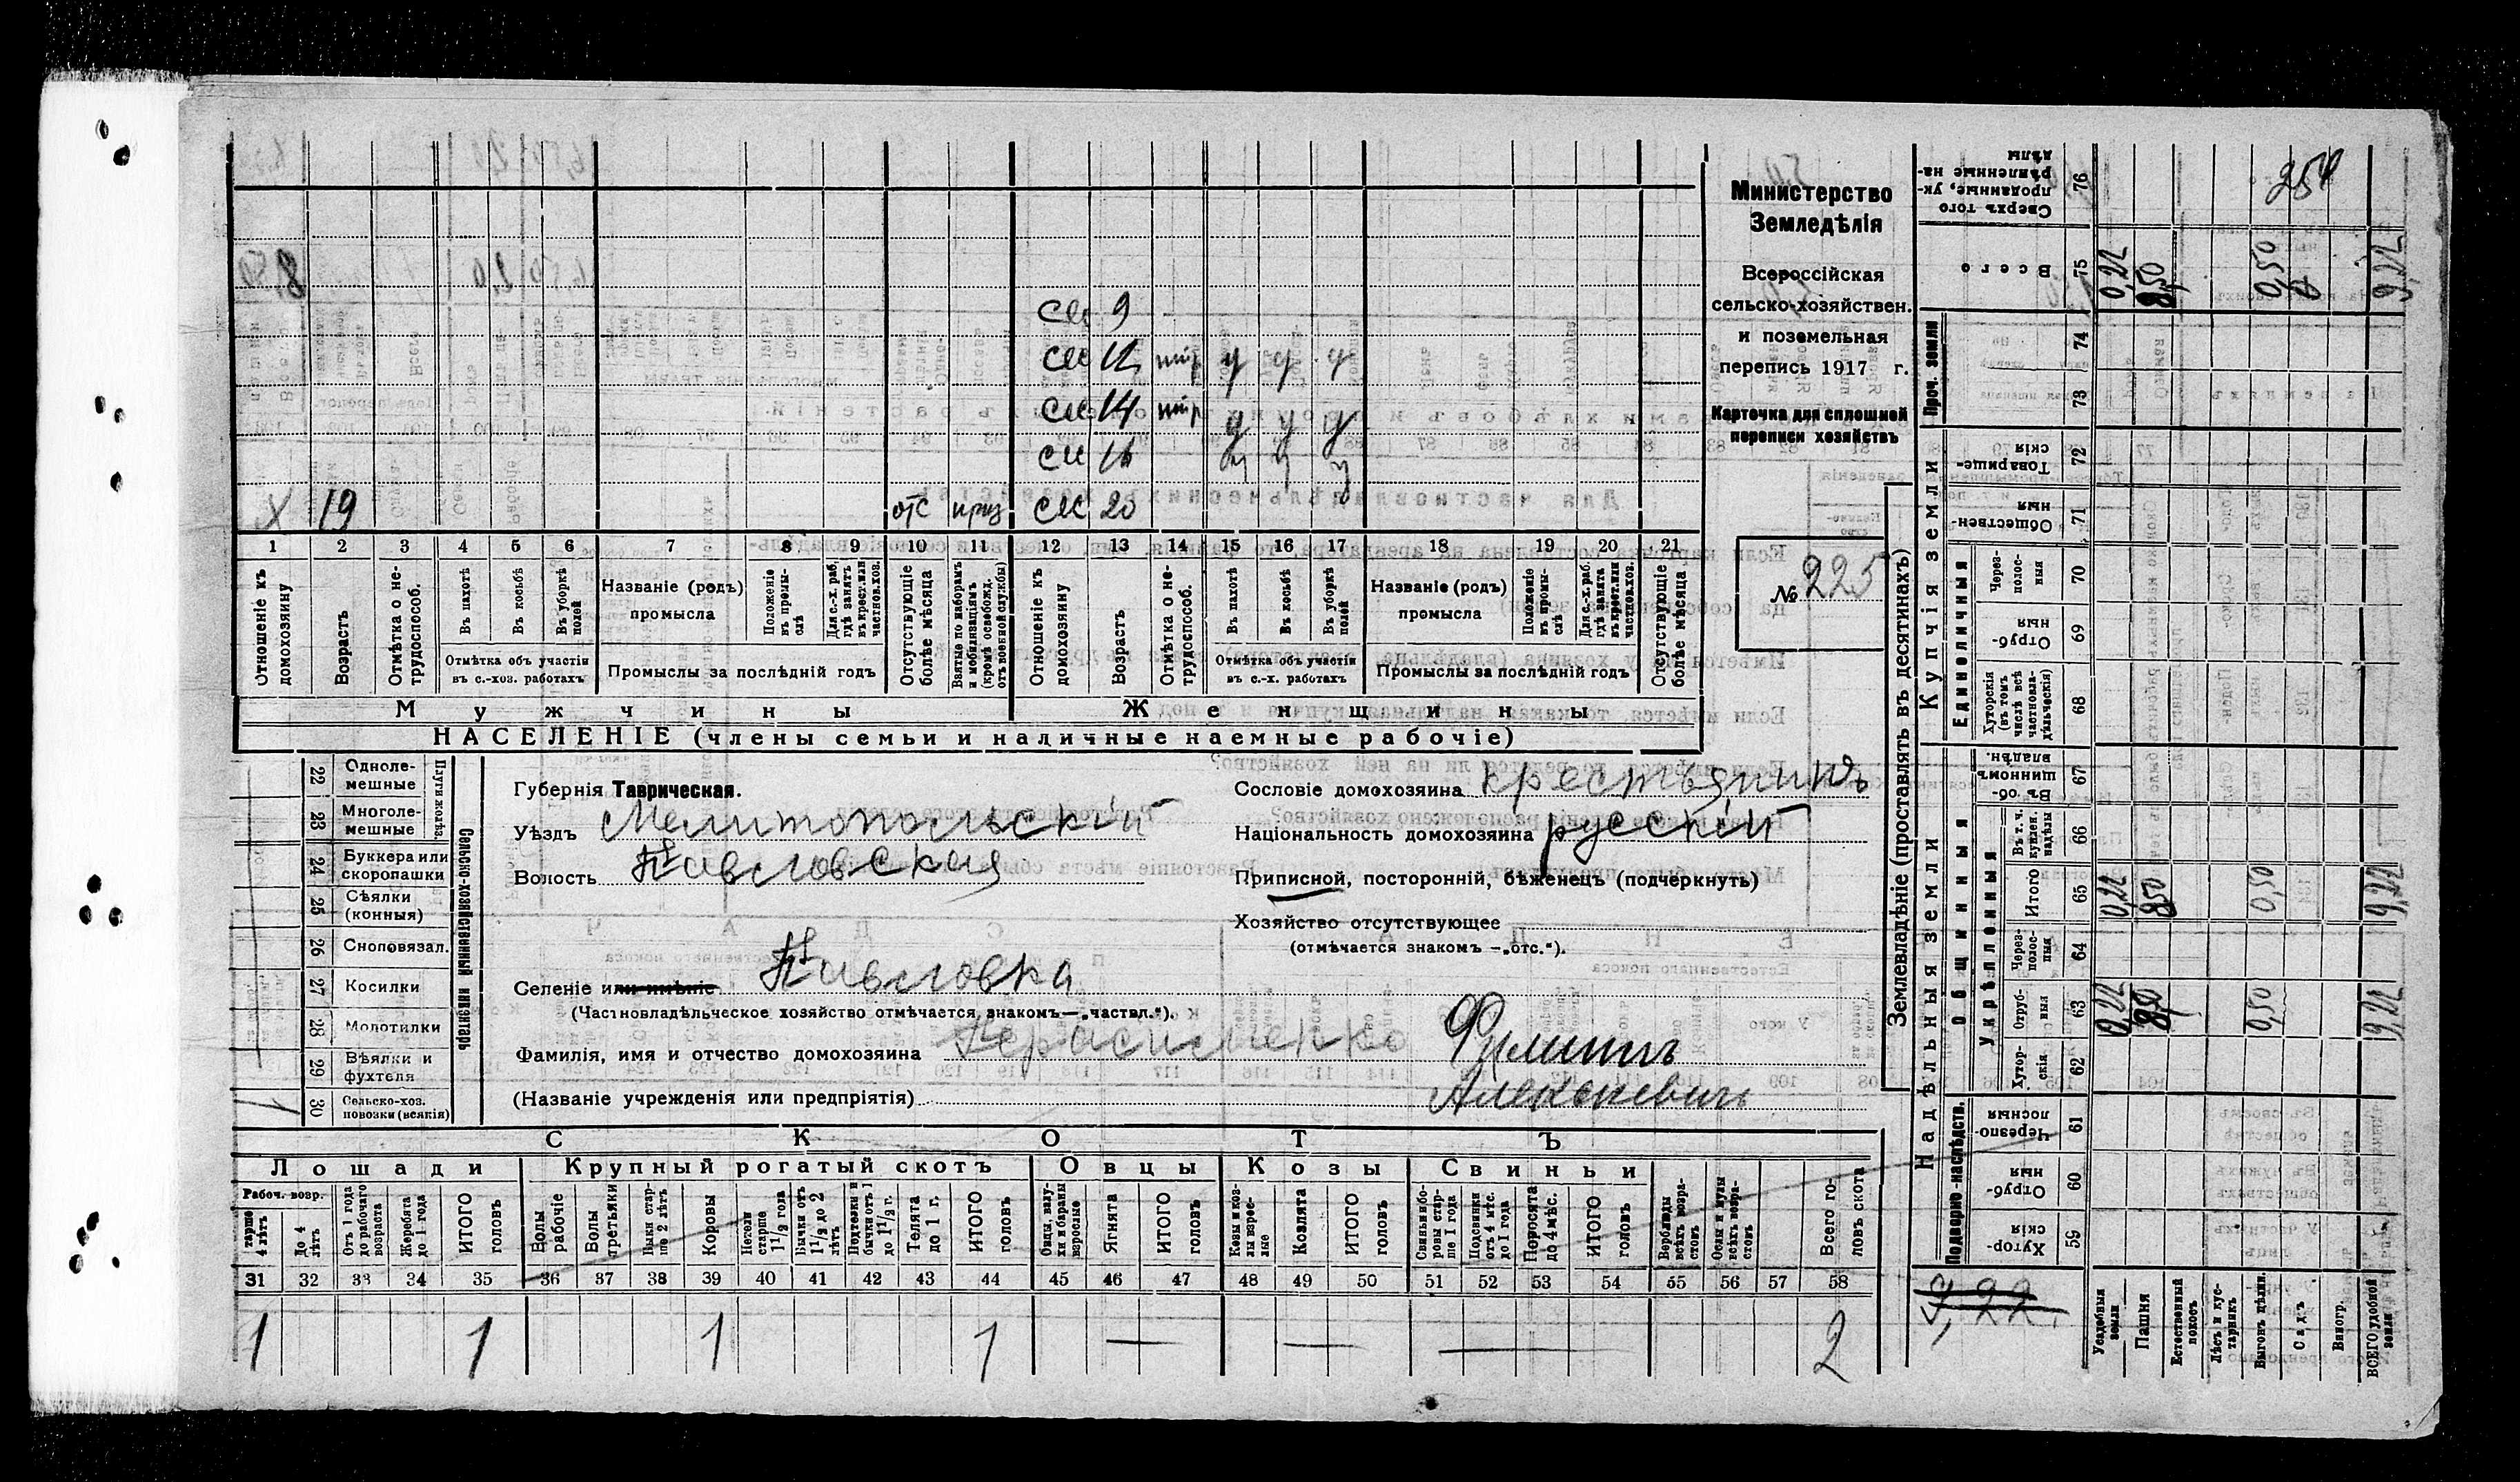 Министерство
Земледѣлія
Всероссійская
сельско-хозяйствен.
и поземельная
перепись 1917 г.
Карточка для сплошной
переписи хозяйствъ
№ 225
см 9
см 12 у у у
см 14 у у у
см 16 у у у
х 19 отс приз см 20
1 2 3 4 5 6 7 8 9 10 11 12 13 14 15 16 17 18 19 20 21
Отношеніе къ домохозяину
Возрастъ
Отмѣтка о не-трудоспособ.
Въ пахотѣ
Въ косьбѣ
Въ уборкѣ полей
Отмѣтка объ участіи въ с.-хоз. работахъ
Названіе (родъ) промысла
Положеніе въ промы-слѣ
Для с.-х. раб. гдѣ занятъ въ крест. или частнов. хоз.
Промыслы за послѣдній годъ
Отсутствующіе болѣе мѣсяца
Взятые по наборамъ и мобилизаціямъ (кромѣ освобожд. отъ военной службы)
Отношеніе къ домохозяину
Возрастъ
Отмѣтка о не-трудоспособ.
Въ пахотѣ
Въ косьбѣ
Въ уборкѣ полей
Отмѣтка объ участіи въ с.-х. работахъ
Названіе (родъ) промысла
Положеніе въ промы-слѣ
Для с.-х. раб. гдѣ занята въ крест. или частнов. хоз.
Промыслы за послѣдній годъ
Отсутствующіе болѣе мѣсяца
Мужчины Женщины
НАСЕЛЕНІЕ (члены семьи и наличные наемные рабочіе)
Сельско-хозяйственный инвентарь
22 Одноле-мешные
23 Многоле-мешные
24 Буккера или скоропашки
25 Сѣялки (конныя)
26 Сноповязал.
27 Косилки
28 Молотилки
29 Вѣялки и фухтеля
30 Сельско-хоз. повозки (всякія) 1
Губернія Таврическая.
Уѣздъ Мелитопольскій
Волость Павловская
Селеніе или имѣніе Павловка
(Частновладѣльческое хозяйство отмѣчается знакомъ—„частвл.“).
Фамилія, имя и отчество домохозяина Герасименко Филиппъ
(Названіе учрежденія или предпріятія) Алексѣевичъ
Сословіе домохозяина крестьянинъ
Національность домохозяина русскій
Приписной, посторонній, бѣженецъ (подчеркнуть)
Хозяйство отсутствующее
(отмѣчается знакомъ —„отс.“).
СКОТЪ
Лошади Крупный рогатый скотъ Овцы Козы Свиньи
Рабоч. возр.
тарше 4 лѣтъ
До 4 лѣтъ
Отъ 1 года до рабочаго возраста
Жеребята до 1 года
ИТОГО головъ
Волы рабочіе
Волы третьяки
Быки стар-ше 2 лѣтъ
Коровы
Нетели старше 1 1/2 года
Бычки отъ 1 1/2 до 2 лѣтъ
Подтелки и бычки отъ 1 до 1 1/2 г.
Телята до 1 г.
ИТОГО головъ
Овцы, валу-хи и бараны взрослые
Ягнята
ИТОГО головъ
Козы и коз-лы взрос-лые
Козлята
ИТОГО головъ
Свиньи и бо-ровы стар-ше 1 года
Подсвинки отъ 4 мѣс. до 1 года
Поросята до 4 мѣс.
ИТОГО головъ
Верблюды всѣхъ возра-стовъ
Ослы и мулы всѣхъ возра-стовъ
Всего го-ловъ скота
31 32 33 34 35 36 37 38 39 40 41 42 43 44 45 46 47 48 49 50 51 52 53 54 55 56 57 58
1 1 1 1 — — — 2
Землевладѣніе (проставлять въ десятинахъ)
Надѣльныя земли
Купчія земли
Проч. земли
Подворно-наслѣдств.
Общинныя
Укрѣпленныя
Единоличныя
Хутор-скія 59
Отруб-ныя 60
Черезпо-лосныя 61
Хутор-скія 62
Отруб-ныя 63
Через-полос-ныя 64
Итого 65
Въ т. ч. куплен. надѣлы 66
Въ об-щинномъ владѣн. 67
Хуторскія (въ томъ числѣ всѣ частновла-дѣльческія) 68
Отруб-ныя 69
Через-полос-ныя 70
Обществен-ныя 71
Товарище-скія 72
73
74
Всего 75
Сверхъ того проданные, ук-рѣпленные на-дѣлы 76
9,22
Усадебныя земли 0,22 0,22 0,22
Пашня 8,50 8,50 8,50
Естественный покосъ
Лѣсъ и кус-тарникъ
Выгонъ цѣлин. 0,50 0,50 0,50
Садъ
Виногр.
ВСЕГО удобной земли 9,22 9,22 9,22